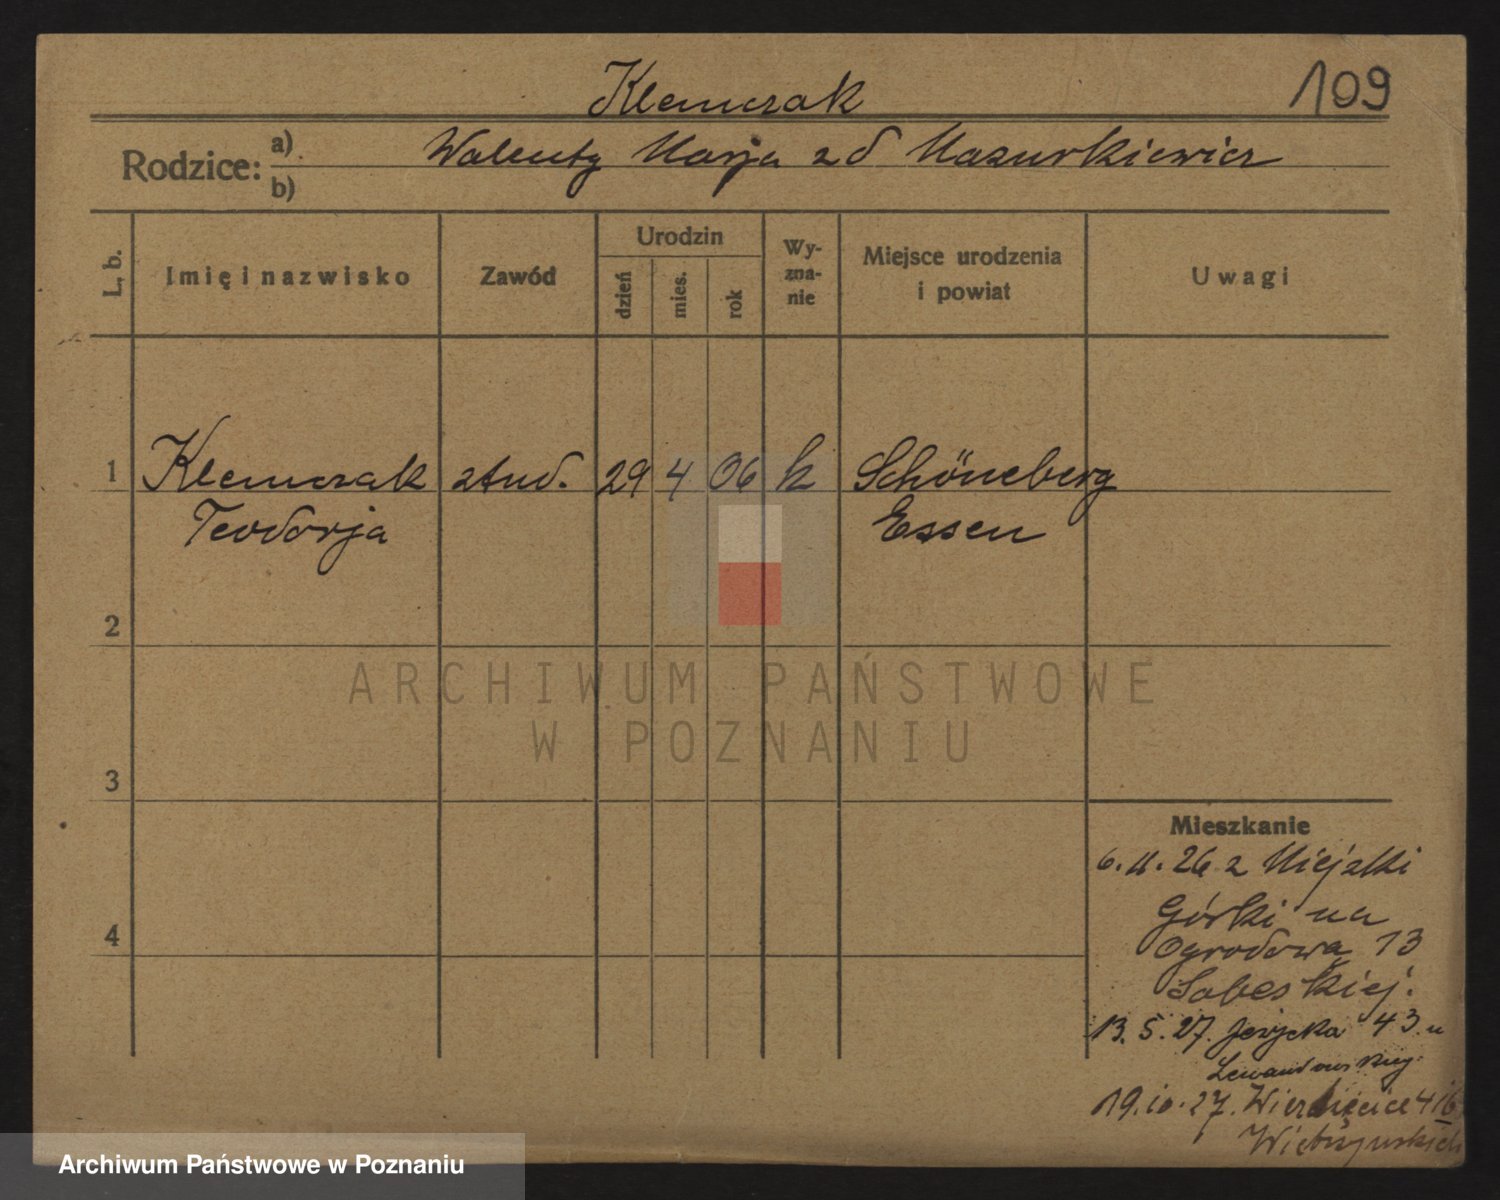 Klemczak
109
Rodzice: a) Walenty Marja z d Mazurkiewicz
b)
L. b.
Imię i nazwisko
Zawód
Urodzin
dzień
mies.
rok
Wy-
zna-
nie
Miejsce urodzenia
i powiat
Uwagi
1 Klemczak stud. 29 4 06 k Schöneberg
Teodorja Essen
2
ARCHIWUM PAŃSTWOWE
W POZNANIU
3
Mieszkanie
6.11.26 z Miejski
Górki na
4
Ogrodowa 13
Sobeskiej.
13.5.27. Jeżycka 43 u
Lewandowskiej
19.10.27. Wierzbięcice 41
Archiwum Państwowe w Poznaniu